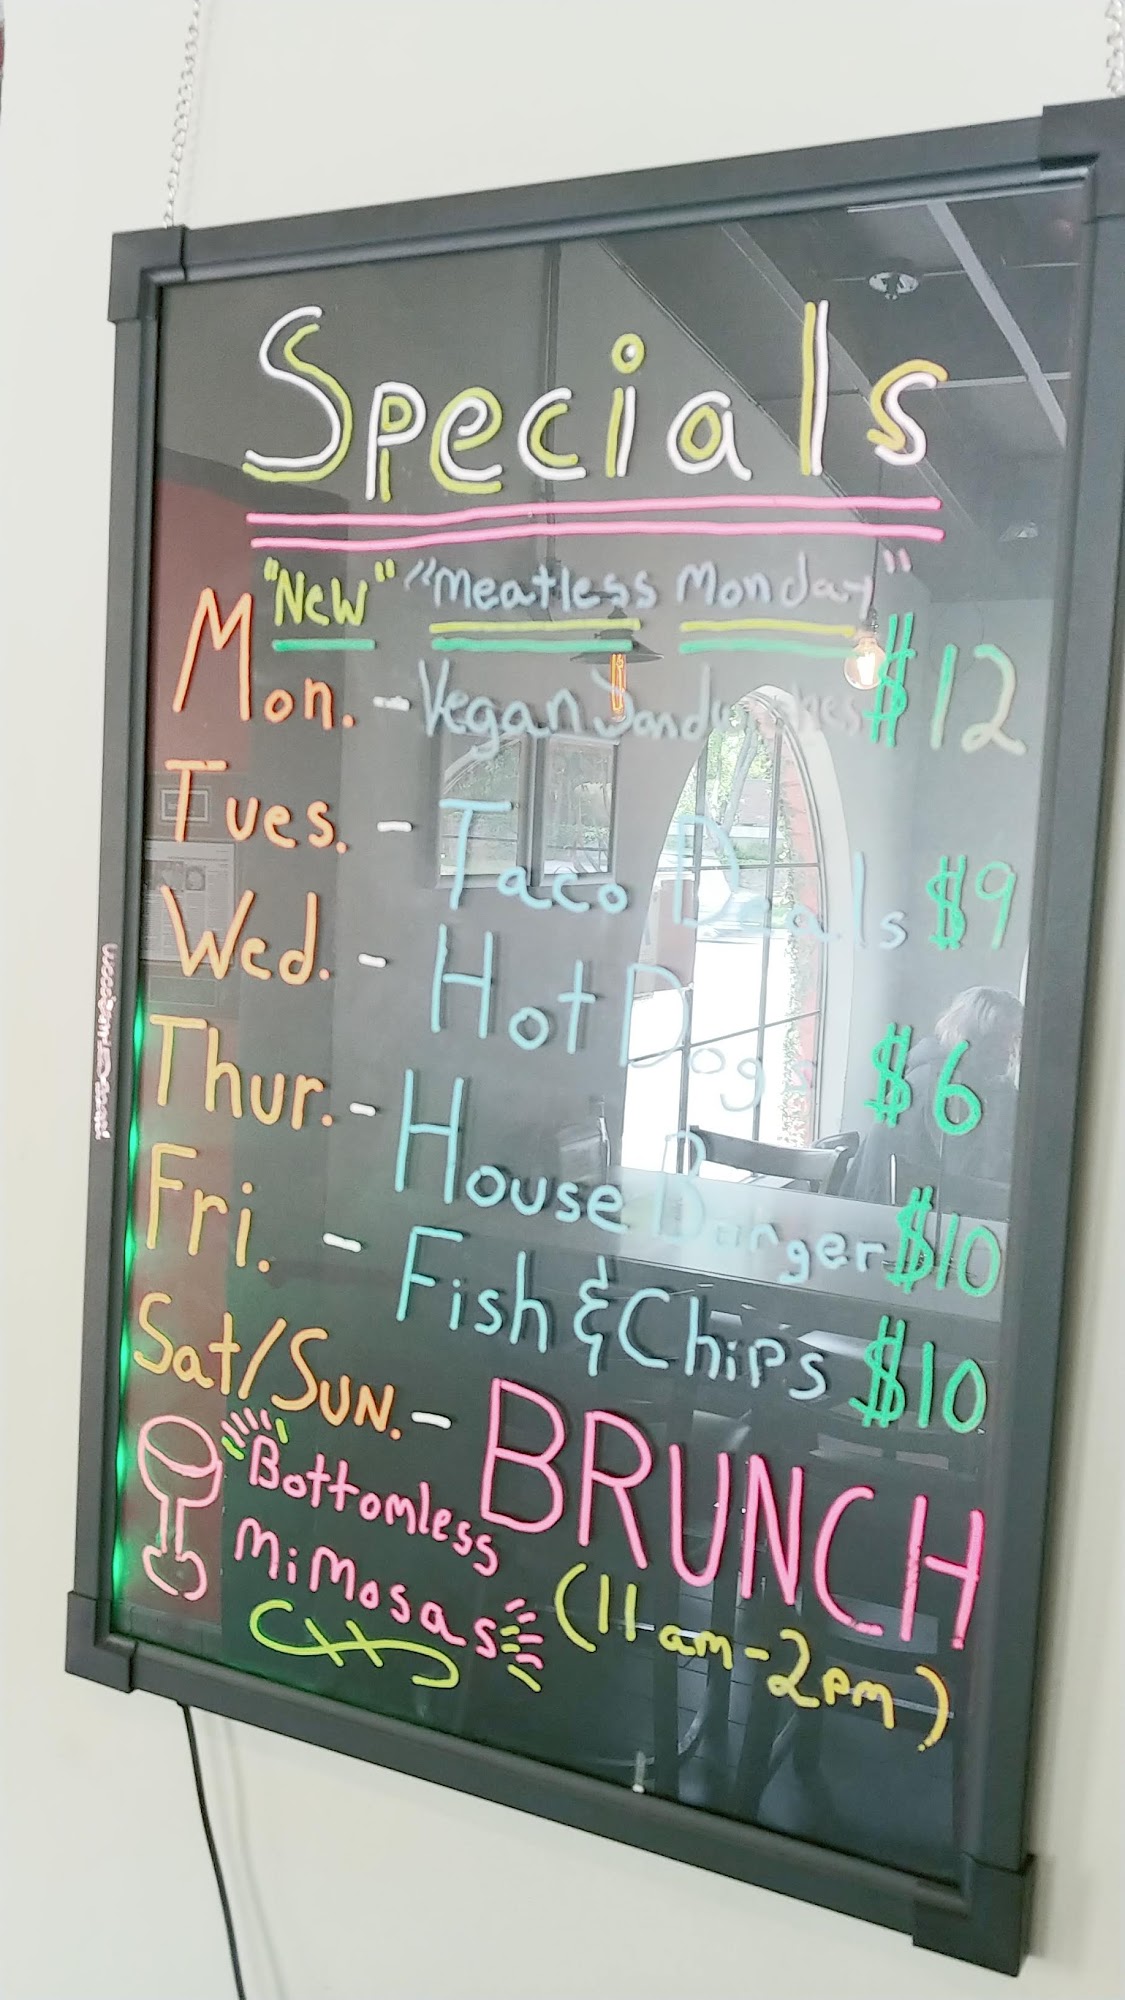 Specials
"New" "Meatless Monday"
Mon. - Vegan Sandwiches $12
Tues. - Taco Deals $9
Wed. - Hot Dogs $6
Thur. - House Burger $10
Fri. - Fish & Chips $10
Sat/Sun. - BRUNCH
Bottomless
Mimosas
(11am-2pm)